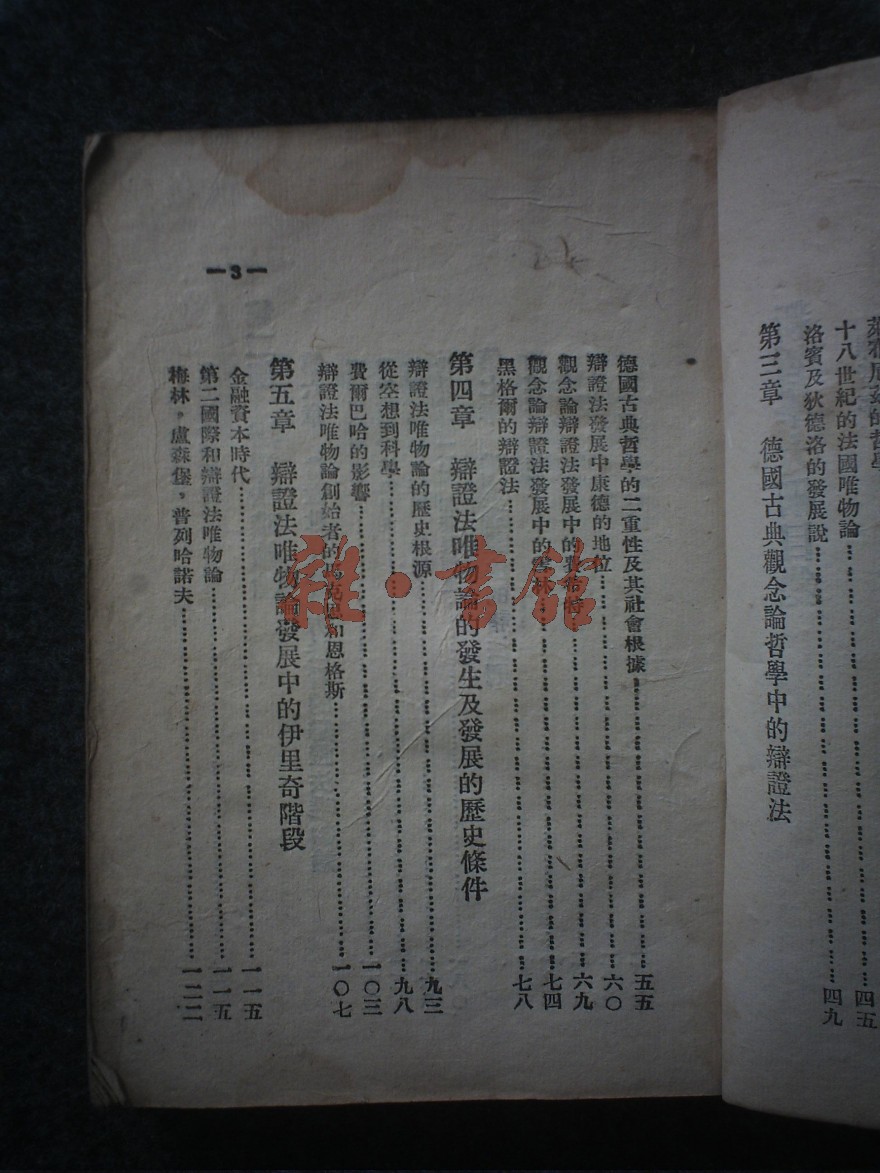 十八世紀的法國唯物論……四五
洛賓及狄德洛的發展說……四九
第三章 德國古典觀念論哲學中的辯證法
—3—
德國古典哲學的二重性及其社會根據……五五
辯證法發展中康德的地位……六〇
觀念論辯證法發展中的……六九
觀念論辯證法發展中的……七四
黑格爾的辯證法……七八
第四章 辯證法唯物論的發生及發展的歷史條件
辯證法唯物論的歷史根源……九三
從空想到科學……九八
費爾巴哈的影響……一〇三
辯證法唯物論創始者的馬克思和恩格斯……一〇七
第五章 辯證法唯物論發展中的伊里奇階段
金融資本時代……一一五
第二國際和辯證法唯物論……一一五
梅林，盧森堡，普列哈諾夫……一二二
雜·書館